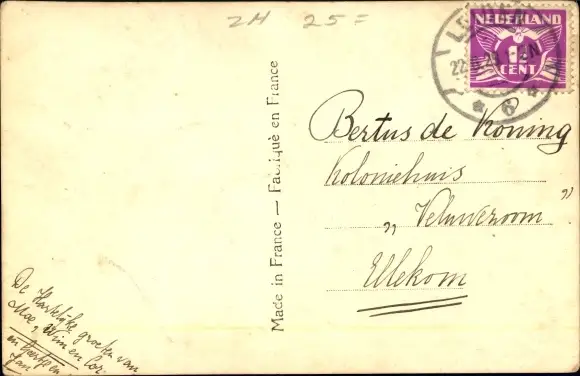 ZH 25=
NEDERLAND
1½
CENT
6
Bertus de Koning
Koloniehuis
„ Veluwezoom "
Ellekom
Made in France — Fabriqué en France
De Hartelijke groeten van
Moe, Wim en Cor
en
Jan